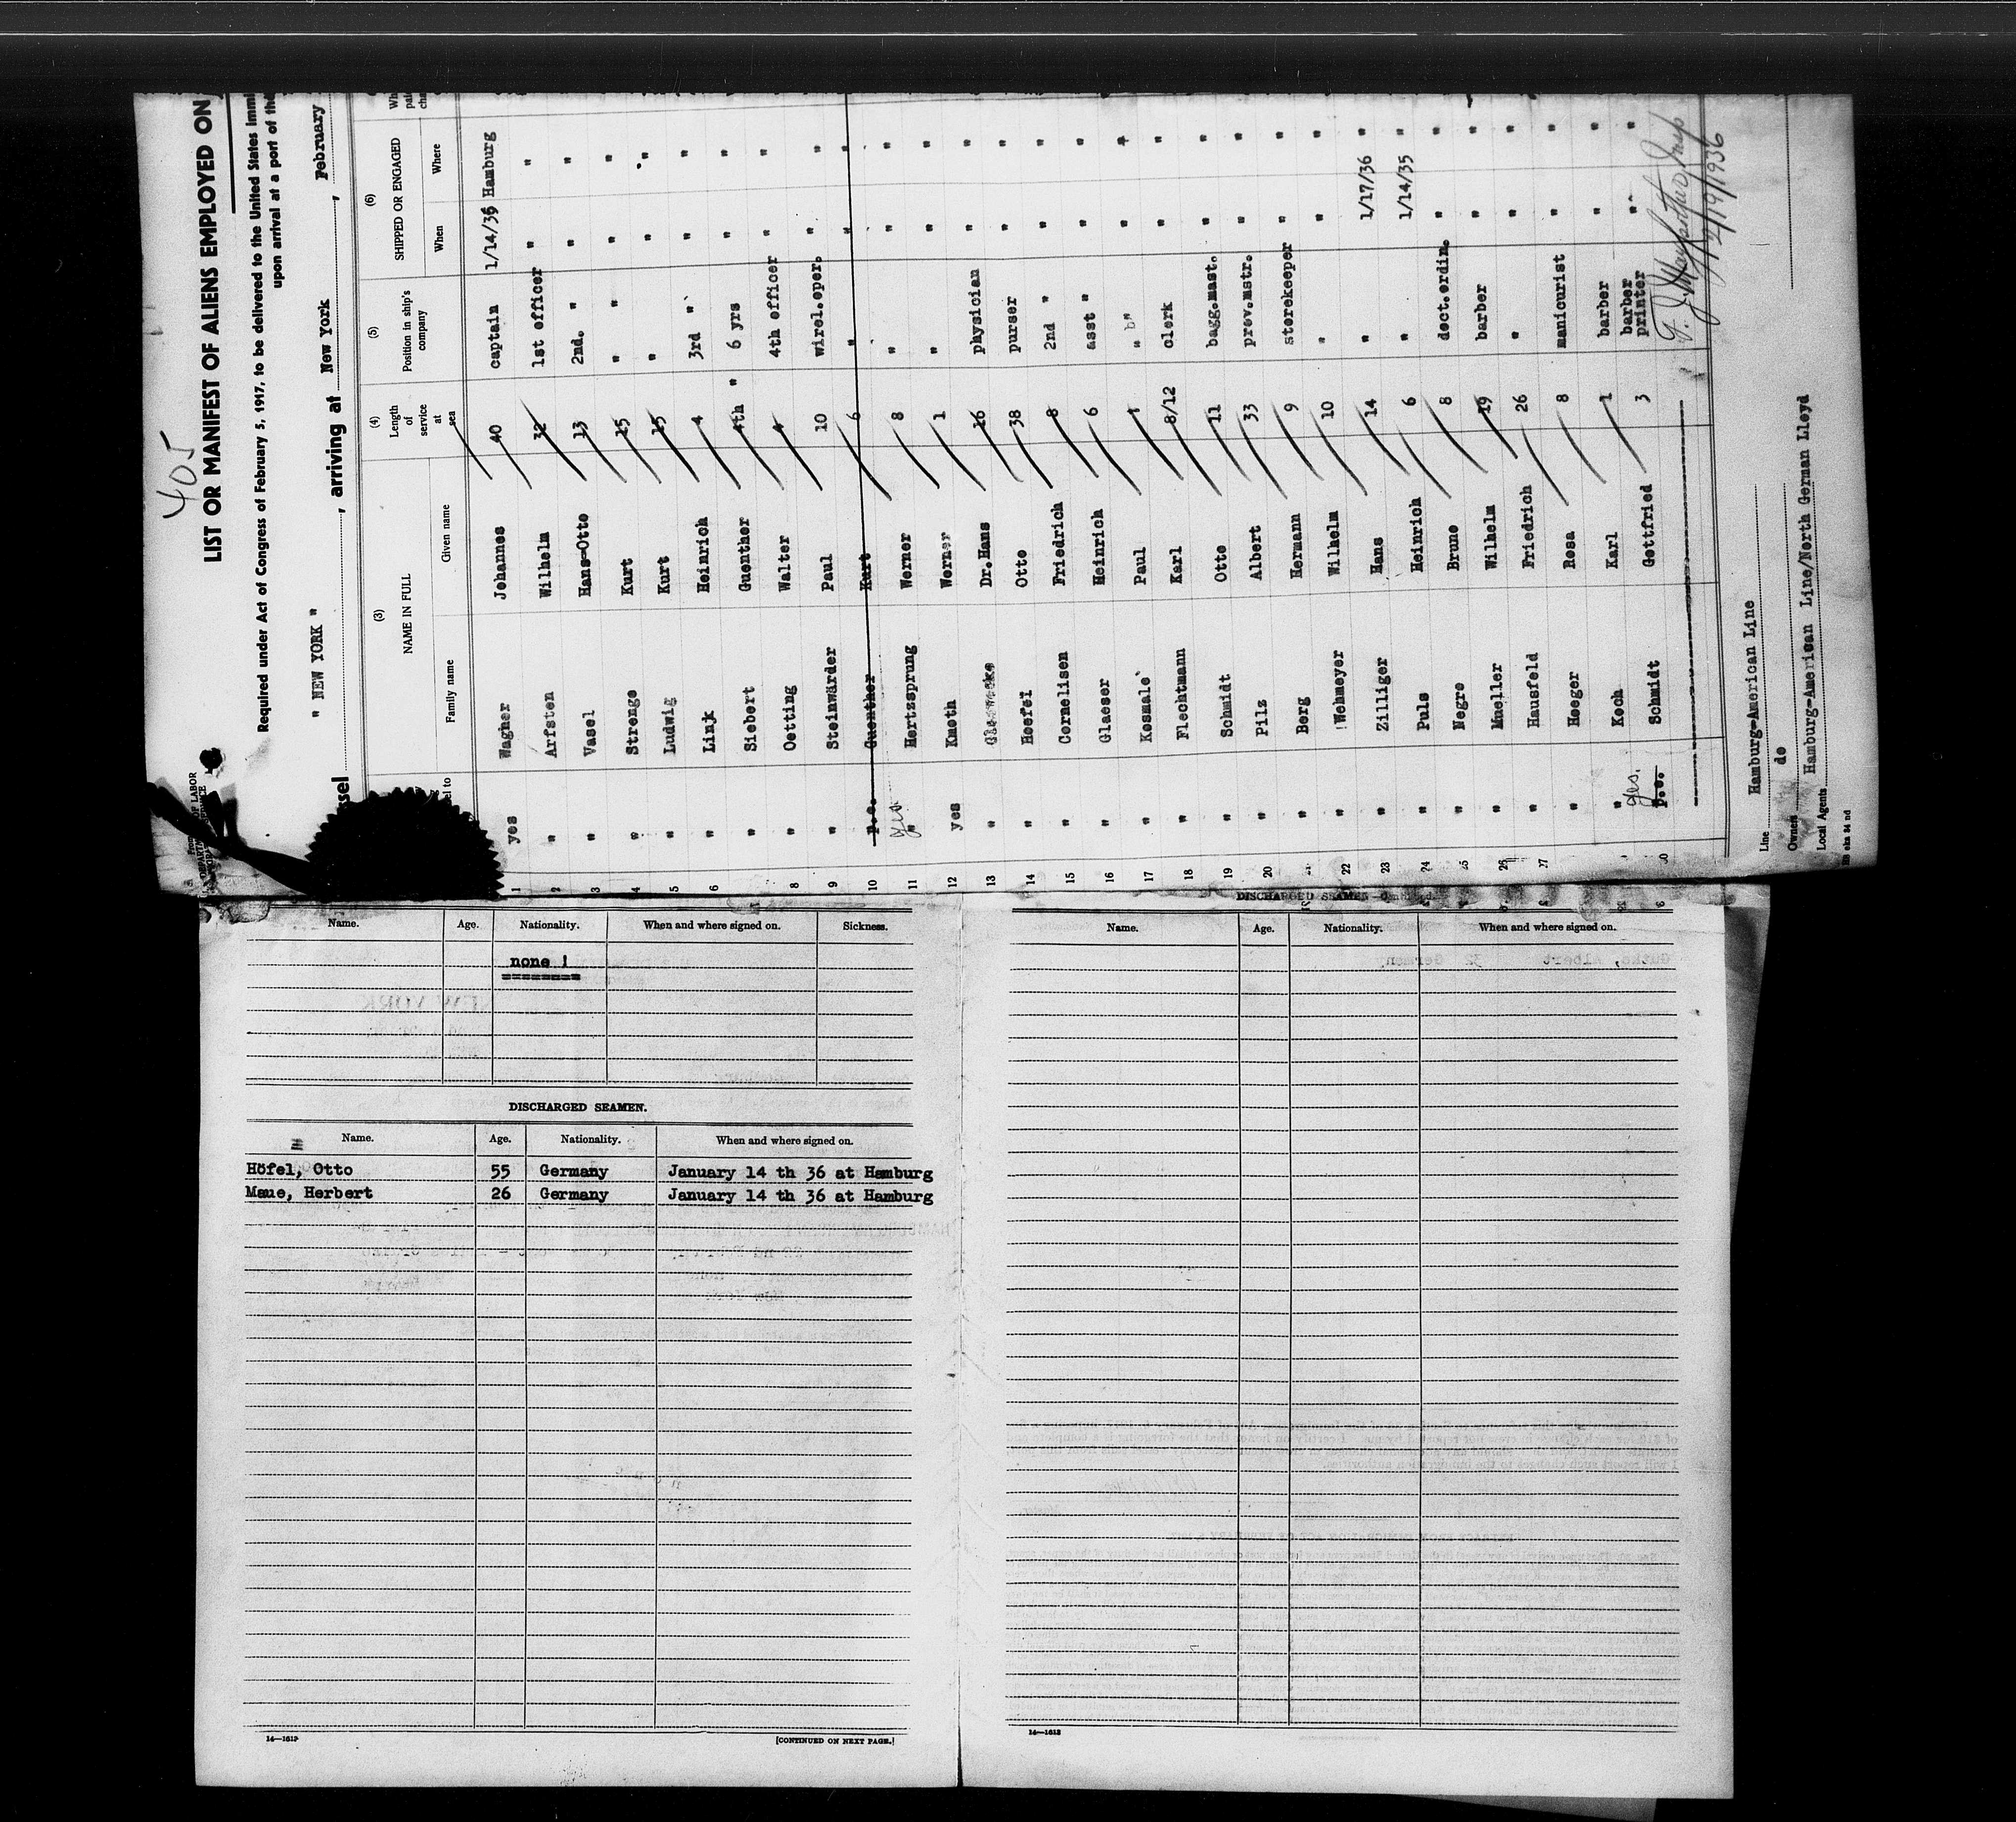 405
LIST OR MANIFEST OF ALIENS EMPLOYED ON
Required under Act of Congress of February 5, 1917, to be delivered to the United States immi
upon arrival at a port of the
OF LABOR
ssel " NEW YORK ", arriving at New York, February
(3) NAME IN FULL (4) Length of service at sea (5) Position in ship's company (6) SHIPPED OR ENGAGED
Family name Given name When Where
1 yes Wagner Johannes 40 captain 1/14/36 Hamburg
2 " Arfsten Wilhelm 32 1st officer " "
3 " Vasel Hans-Otto 13 2nd. " " "
4 " Strenge Kurt 15 " " "
5 " Ludwig Kurt 15 " " "
6 " Link Heinrich 4 3rd " " "
" Siebert Guenther 4th " 6 yrs " "
8 " Oetting Walter 4 4th officer " "
9 " Steinwärder Paul 10 wirel.oper. " "
10 p.o. Guenther Kurt 6 " " "
11 yes " Hertzsprung Werner 8 " " "
12 yes Kmoth Werner 1 " " "
13 " Dr.Hans 16 physician " "
14 " Hoefel Otto 38 purser " "
15 " Cornelisen Friedrich 8 2nd " " "
16 " Glaeser Heinrich 6 asst " " "
17 " Kosmale Paul 1 " b" " "
18 " Flechtmann Karl 8/12 clerk " "
19 " Schmidt Otto 11 bagg.mast. " "
20 " Pilz Albert 33 prov.mstr. " "
" Berg Hermann 9 storekeeper " "
22 " Wehmeyer Wilhelm 10 " " "
23 " Zilliger Hans 14 " 1/17/36 "
24 " Puls Heinrich 6 " 1/14/35 "
25 " Negro Bruno 8 doct.ordin. " "
26 " Mueller Wilhelm 19 barber " "
27 " Hausfeld Friedrich 26 " " "
" Heeger Rosa 8 manicurist " "
" Koch Karl 1 barber " "
yes. p.o. Schmidt Gottfried 3 barber printer " "
2/19/1936
Line Hamburg-American Line
Owners do
Local Agents Hamburg-American Line/North German Lloyd
Name. Age. Nationality. When and where signed on. Sickness.
none !
DISCHARGED SEAMEN.
Name. Age. Nationality. When and where signed on.
Höfel, Otto 55 Germany January 14 th 36 at Hamburg
Maue, Herbert 26 Germany January 14 th 36 at Hamburg
14—1613
[CONTINUED ON NEXT PAGE.]
DISCHARGED SEAMEN—Continued.
Name. Age. Nationality. When and where signed on.
14—1613